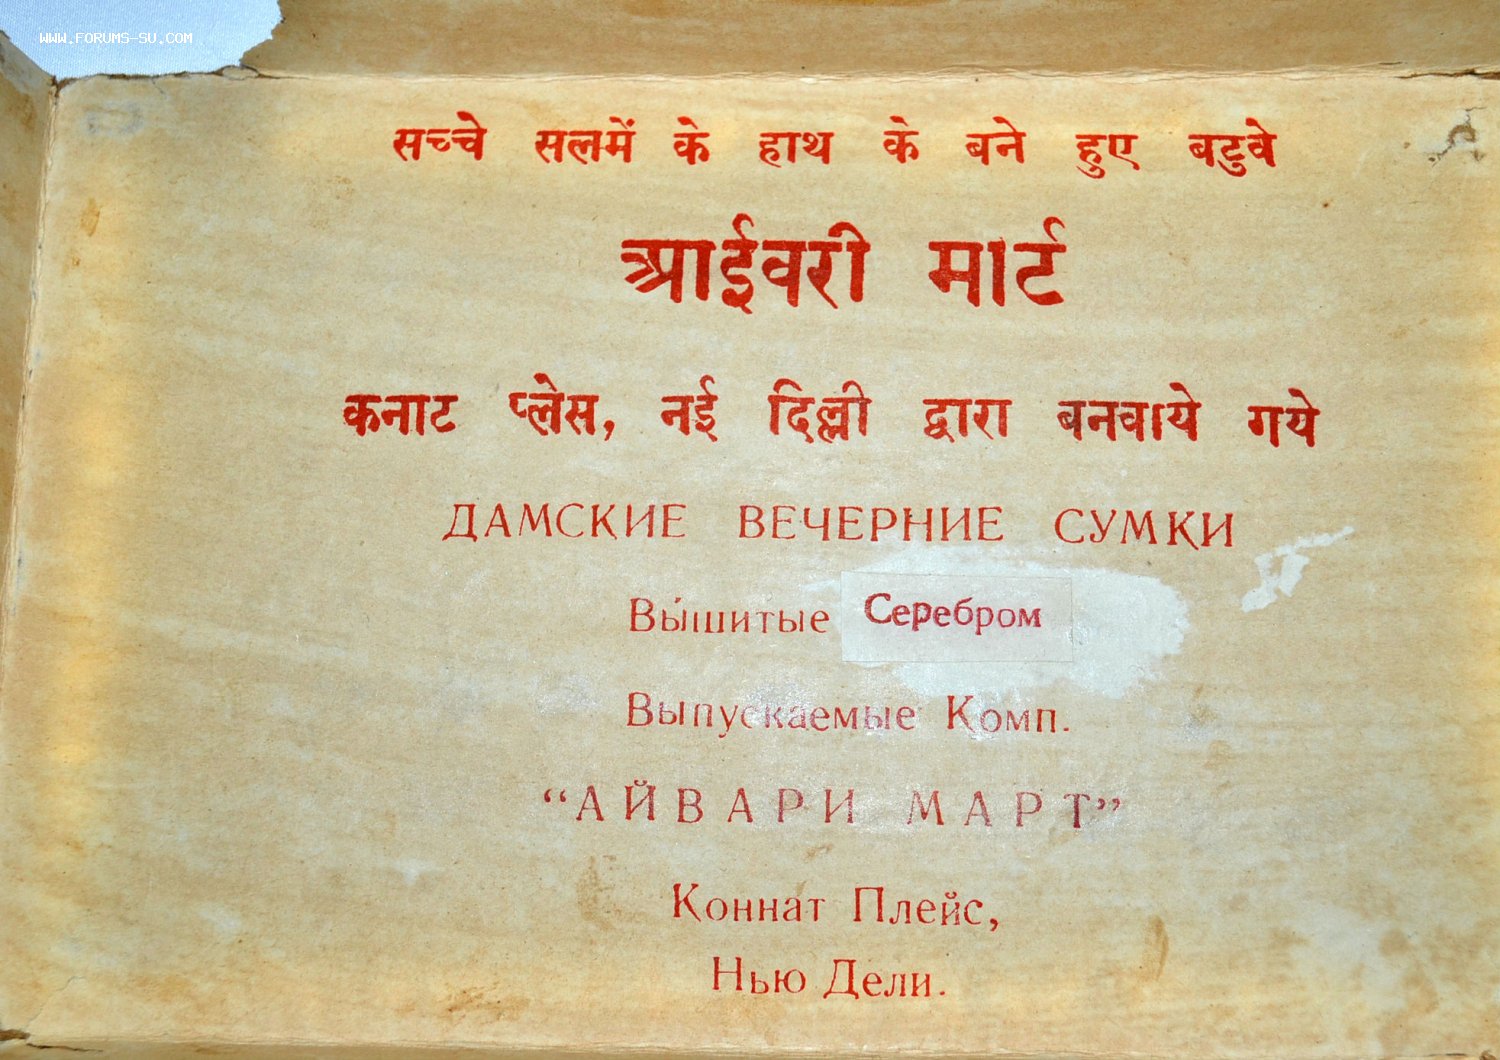 WWW.FORUMS-SU.COM
सच्चे सलमें के हाथ के बने हुए बटुवे
आईवरी मार्ट
कनाट प्लेस, नई दिल्ली द्वारा बनवाये गये
ДАМСКИЕ ВЕЧЕРНИЕ СУМКИ
Вы́шитые Серебром
Выпускаемые Комп.
“АЙВАРИ МАРТ”
Коннат Плейс,
Нью Дели.